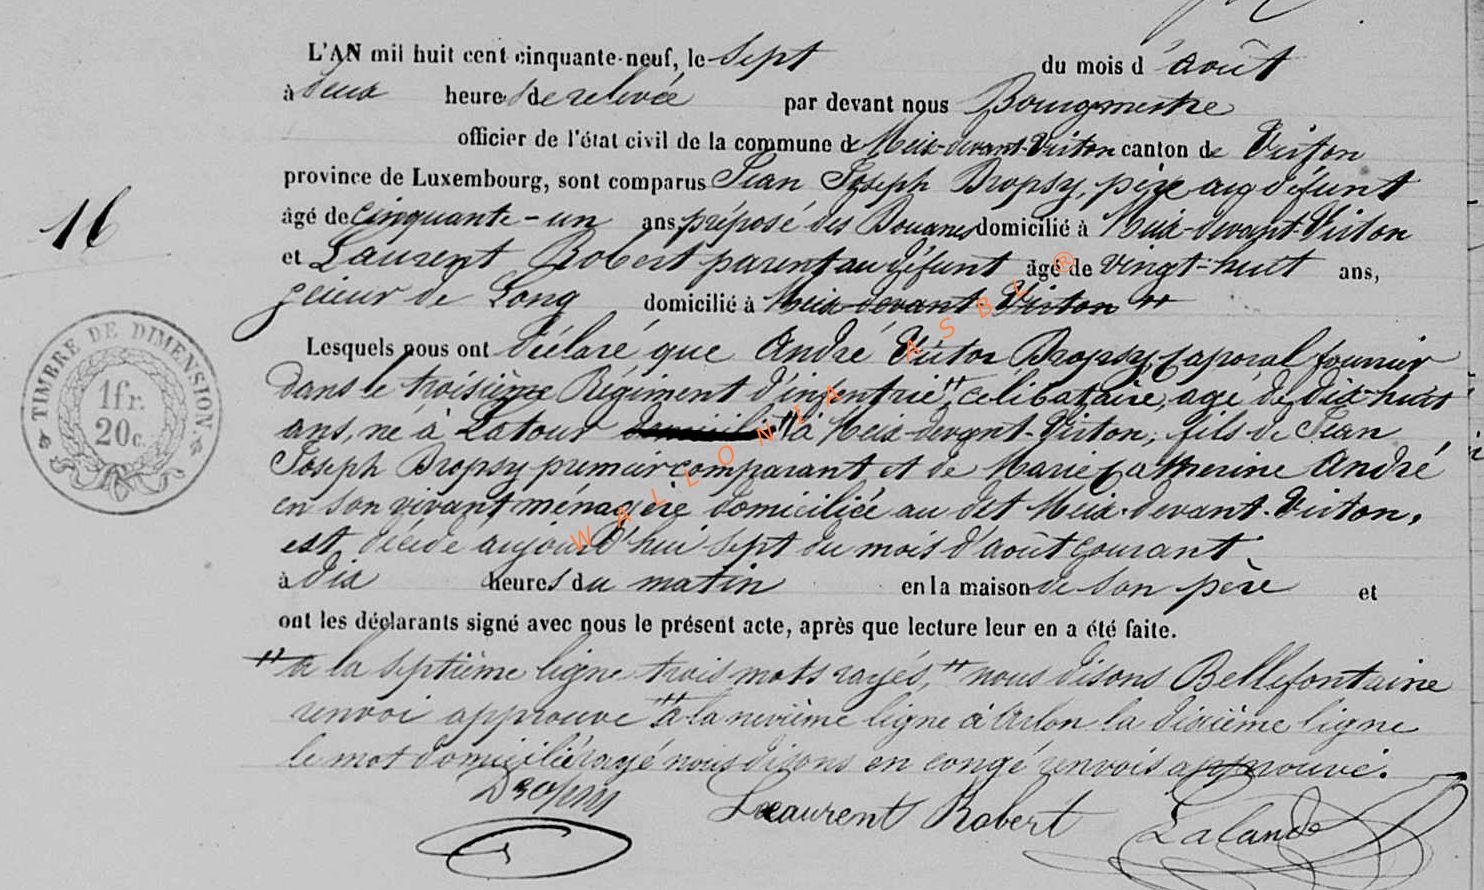 L'AN mil huit cent cinquante-neuf, le sept du mois d'août
à deux heures de relevée par devant nous Bourgmestre
officier de l'état civil de la commune de Meix-devant-Virton canton de Virton
province de Luxembourg, sont comparus Jean Joseph Dropsy, père au défunt
16
âgé de cinquante-un ans, préposé des Douanes domicilié à Meix-devant-Virton
et Laurent Robert parent au défunt âgé de vingt-huit ans,
scieur de Long domicilié à Meix-devant Virton "
Lesquels nous ont déclaré que André Victor Dropsy, Caporal fourrier
dans le troisième Régiment d'infentrie", célibataire, agé de dix-huit
ans, né à Latour domicilié "à Meix-devant-Virton, fils de Jean
Joseph Dropsy premier comparant et de Marie Catherine André
en son vivant ménagère domiciliée au dit Meix-devant-Virton,
est décédé aujourd'hui sept du mois d'août courant
à dix heures du matin en la maison de son père et
ont les déclarants signé avec nous le présent acte, après que lecture leur en a été faite.
" à la septième ligne trois mots rayés, " nous disons Bellefontaine
renvoi approuvé " à la neuvième ligne à Arlon la dixième ligne
le mot domicilié rayé nous disons en congé renvois approuvé.
Dropsy Laurent Robert Lalande
TIMBRE DE DIMENSION
1 fr.
20 c.
WALLONIA ASBL ®